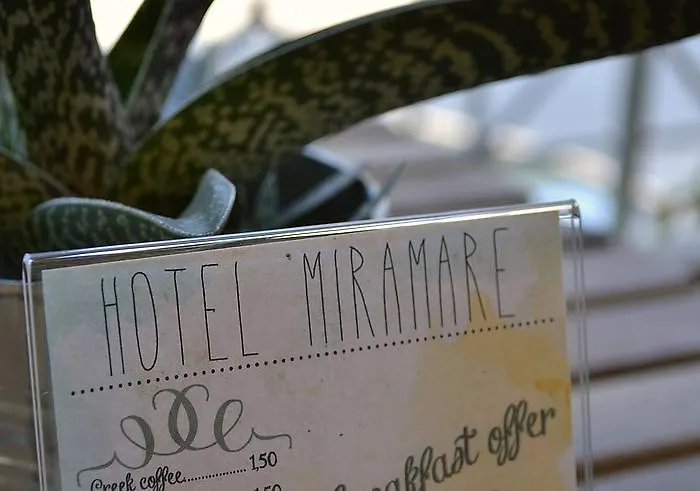 HOTEL MIRAMARE
Greek coffee..................1,50
1,50
breakfast offer